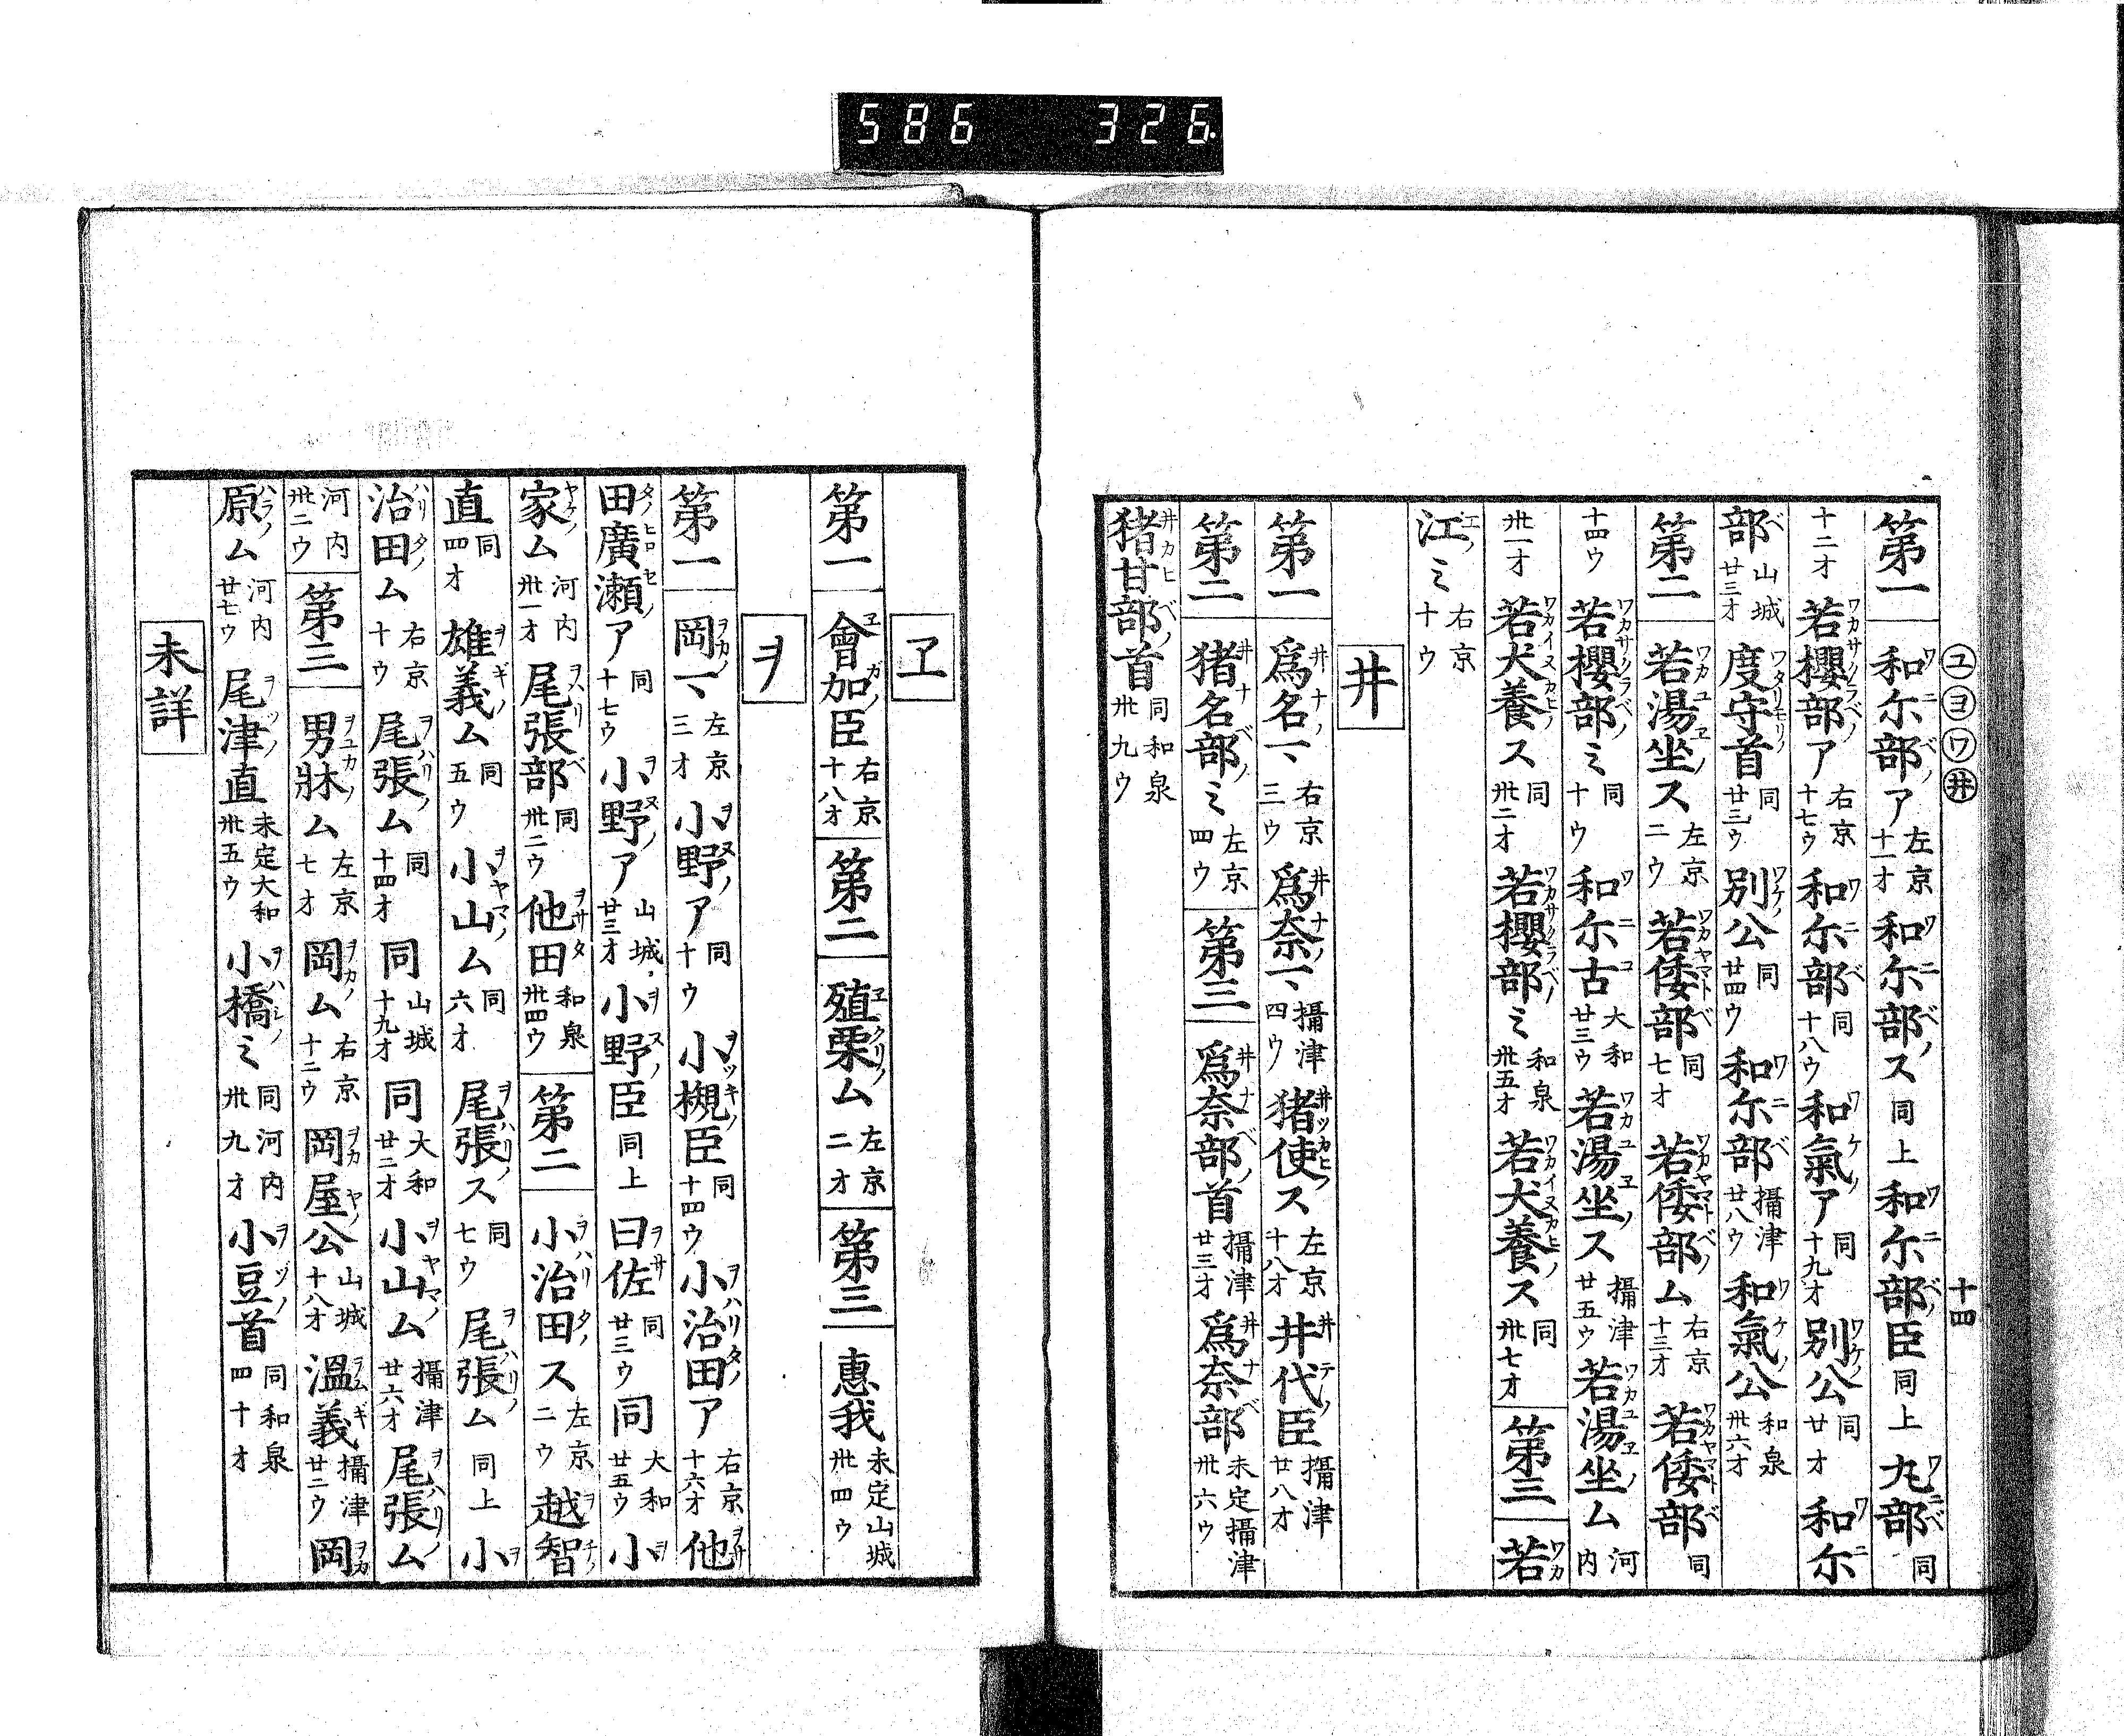 586 326
ユヨワ井 十四
第一 和尓部ア 左京十一オ 和尓部ス 同上 和尓部臣 同上 丸部 同
十二オ 若櫻部ア 右京十七ウ 和尓部 同十八ウ 和氣ア 同十九オ 別公 同廿オ 和尓
部 山城廿三オ 度守首 同廿三ウ 別公 同廿四ウ 和尓部 攝津廿八ウ 和氣公 和泉卅六オ
第二 若湯坐ス 左京二ウ 若倭部 同七オ 若倭部ム 右京十三オ 若倭部 同
十四ウ 若櫻部ミ 同十ウ 和尓古 大和廿三ウ 若湯坐ス 攝津廿五ウ 若湯坐ム 河内
卅一オ 若犬養ス 同卅二オ 若櫻部ミ 和泉卅五オ 若犬養ス 同卅七オ 第三 若
江ミ 右京十ウ
井
第一 爲名丶 右京三ウ 爲奈丶 攝津四ウ 猪使ス 左京十八オ 井代臣 攝津廿八オ
第二 猪名部ミ 左京四ウ 第三 爲奈部首 攝津廿三オ 爲奈部 未定攝津卅六ウ
猪甘部首 同和泉卅九ウ
ヱ
第一 會加臣 右京十八オ 第二 殖栗ム 左京二オ 第三 惠我 未定山城卅四ウ
ヲ
第一 岡丶 左京三オ 小野ア 同十ウ 小槻臣 同十四ウ 小治田ア 右京十六オ 他
田廣瀬ア 同十七ウ 小野ア 山城廿三オ 小野臣 同上 曰佐 同廿三ウ 同 大和廿五ウ 小
家ム 河内卅一オ 尾張部 同卅二ウ 他田 和泉卅四ウ 第二 小治田ス 左京二ウ 越智
直 同四オ 雄義ム 同五ウ 小山ム 同六オ 尾張ス 同七ウ 尾張ム 同上 小
治田ム 右京十ウ 尾張ム 同十四オ 同 山城十九オ 同 大和廿二オ 小山ム 攝津廿六オ 尾張ム
河内卅二ウ 第三 男牀ム 左京七オ 岡ム 右京十二ウ 岡屋公 山城十八オ 溫義 攝津廿二ウ 岡
原ム 河内廿七ウ 尾津直 未定大和卅五ウ 小橋ミ 同河内卅九オ 小豆首 同和泉四十オ
未詳